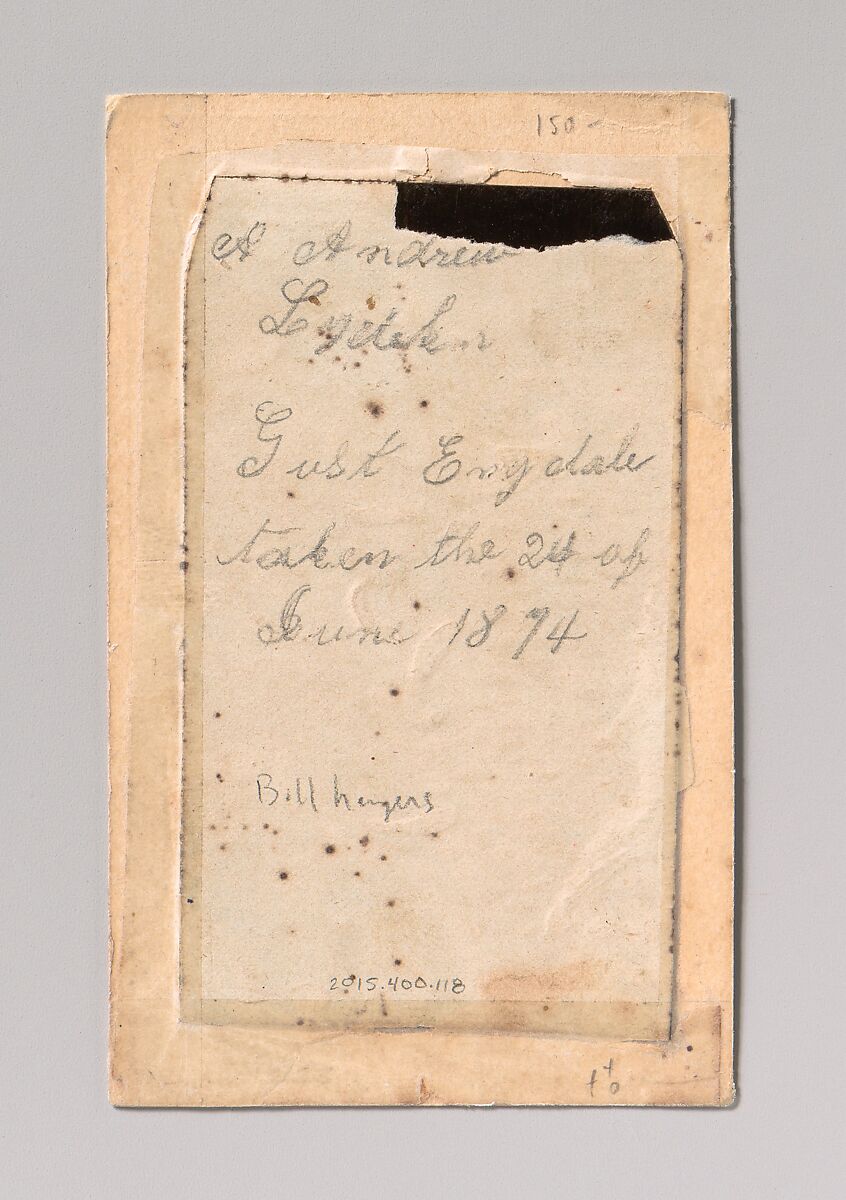 150-
A Andrew
Gust Engdale
taken the 24 of
June 1874
Bill
2015.400.118